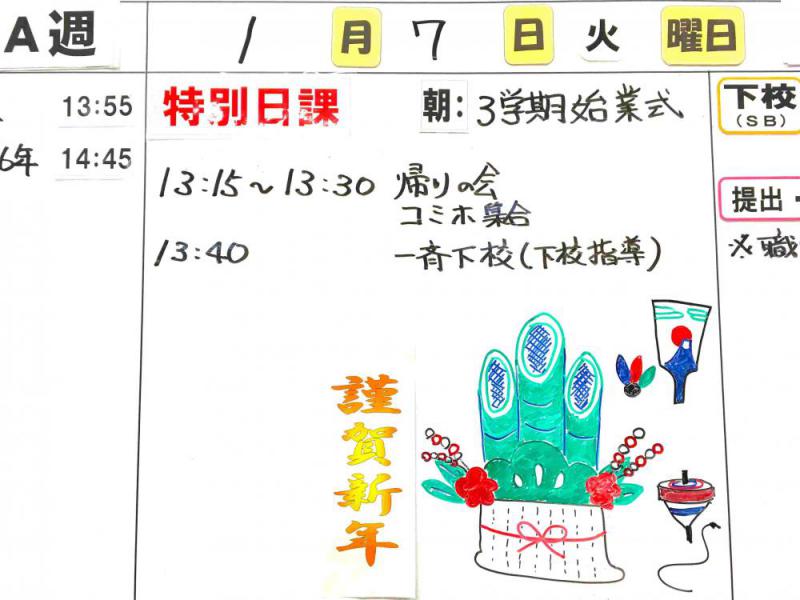 A週
1月7日火曜日
13:55
6年 14:45
特別日課 朝:3学期始業式
13:15～13:30 帰りの会
コミホ集合
13:40 一斉下校(下校指導)
謹賀新年
下校
(SB)
提出・
※職